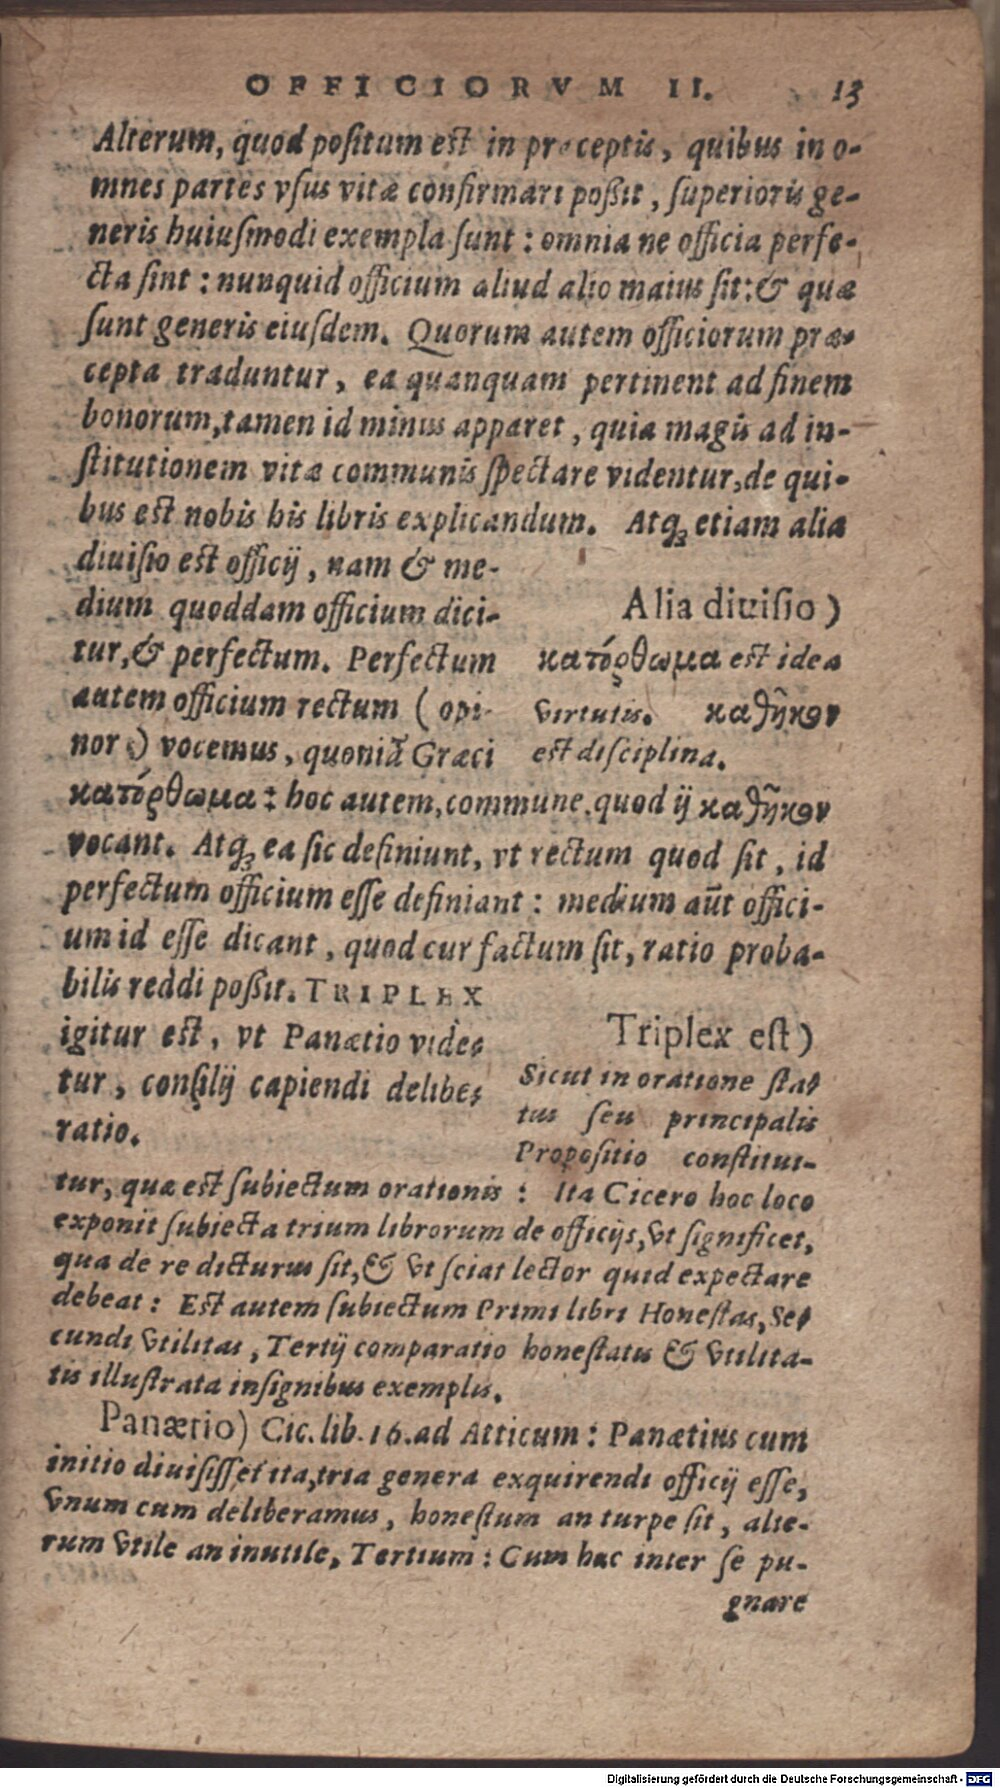 OFFICIORVM II. 13
Alterum, quod positum est in præceptis, quibus in o-
mnes partes vsus vitæ confirmari poßit, superioris ge-
neris huiusmodi exempla sunt: omnia ne officia perfe-
cta sint: nunquid officium aliud alio maius sit: & quæ
sunt generis eiusdem. Quorum autem officiorum præ-
cepta traduntur, ea quanquam pertinent ad finem
bonorum, tamen id minus apparet, quia magis ad in-
stitutionem vitæ communis spectare videntur, de qui-
bus est nobis his libris explicandum. Atq; etiam alia
diuisio est officij, nam & me-
dium quoddam officium dici-
tur, & perfectum. Perfectum
autem officium rectum (opi-
nor) vocemus, quoniã Græci
Alia diuisio)
κατόρθωμα est idea
virtutis. καθῆκον
est disciplina.
κατόρθωμα: hoc autem, commune, quod ij καθῆκον
vocant. Atq; ea sic definiunt, vt rectum quod sit, id
perfectum officium esse definiant: medium aūt offici-
um id esse dicant, quod cur factum sit, ratio proba-
bilis reddi poßit. TRIPLEX
igitur est, vt Panætio vide-
tur, consilij capiendi delibe-
ratio.
Triplex est)
Sicut in oratione sta-
tus seu principalis
Propositio constitui-
tur, quæ est subiectum orationis: Ita Cicero hoc loco
exponit subiecta trium librorum de officijs, vt significet,
qua de re dicturus sit, & vt sciat lector quid expectare
debeat: Est autem subiectum Primi libri Honestas, Se-
cundi vtilitas, Tertij comparatio honestatis & vtilita-
tis illustrata insignibus exemplis.
Panætio) Cic. lib. 16. ad Atticum: Panætius cum
initio diuisisset ita, tria genera exquirendi officij esse,
vnum cum deliberamus, honestum an turpe sit, alte-
rum vtile an inutile, Tertium: Cum hæc inter se pu-
gnare
Digitalisierung gefördert durch die Deutsche Forschungsgemeinschaft - DFG